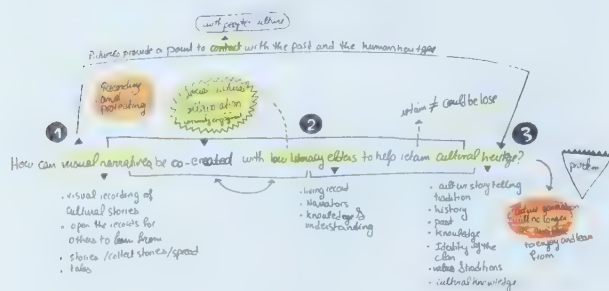 with people culture
Pictures provide a point to contact with the past and the human heritage
Recording
and
protecting
community engagement
retain ≠ could be lose
1
2
3
How can visual narratives be co-created with low literacy elders to help retain cultural heritage?
problem
• visual recording of
Cultural stories
• open the records for
others to learn from
• stories / collect stories / spread
• tales
• living record
• Narrators
• knowledge &
understanding
story telling
tradition
• history
• past
• knowledge
• Identity of the
clan
• values & traditions
• cultural knowledge
future generation
will no longer
to enjoy and learn
from